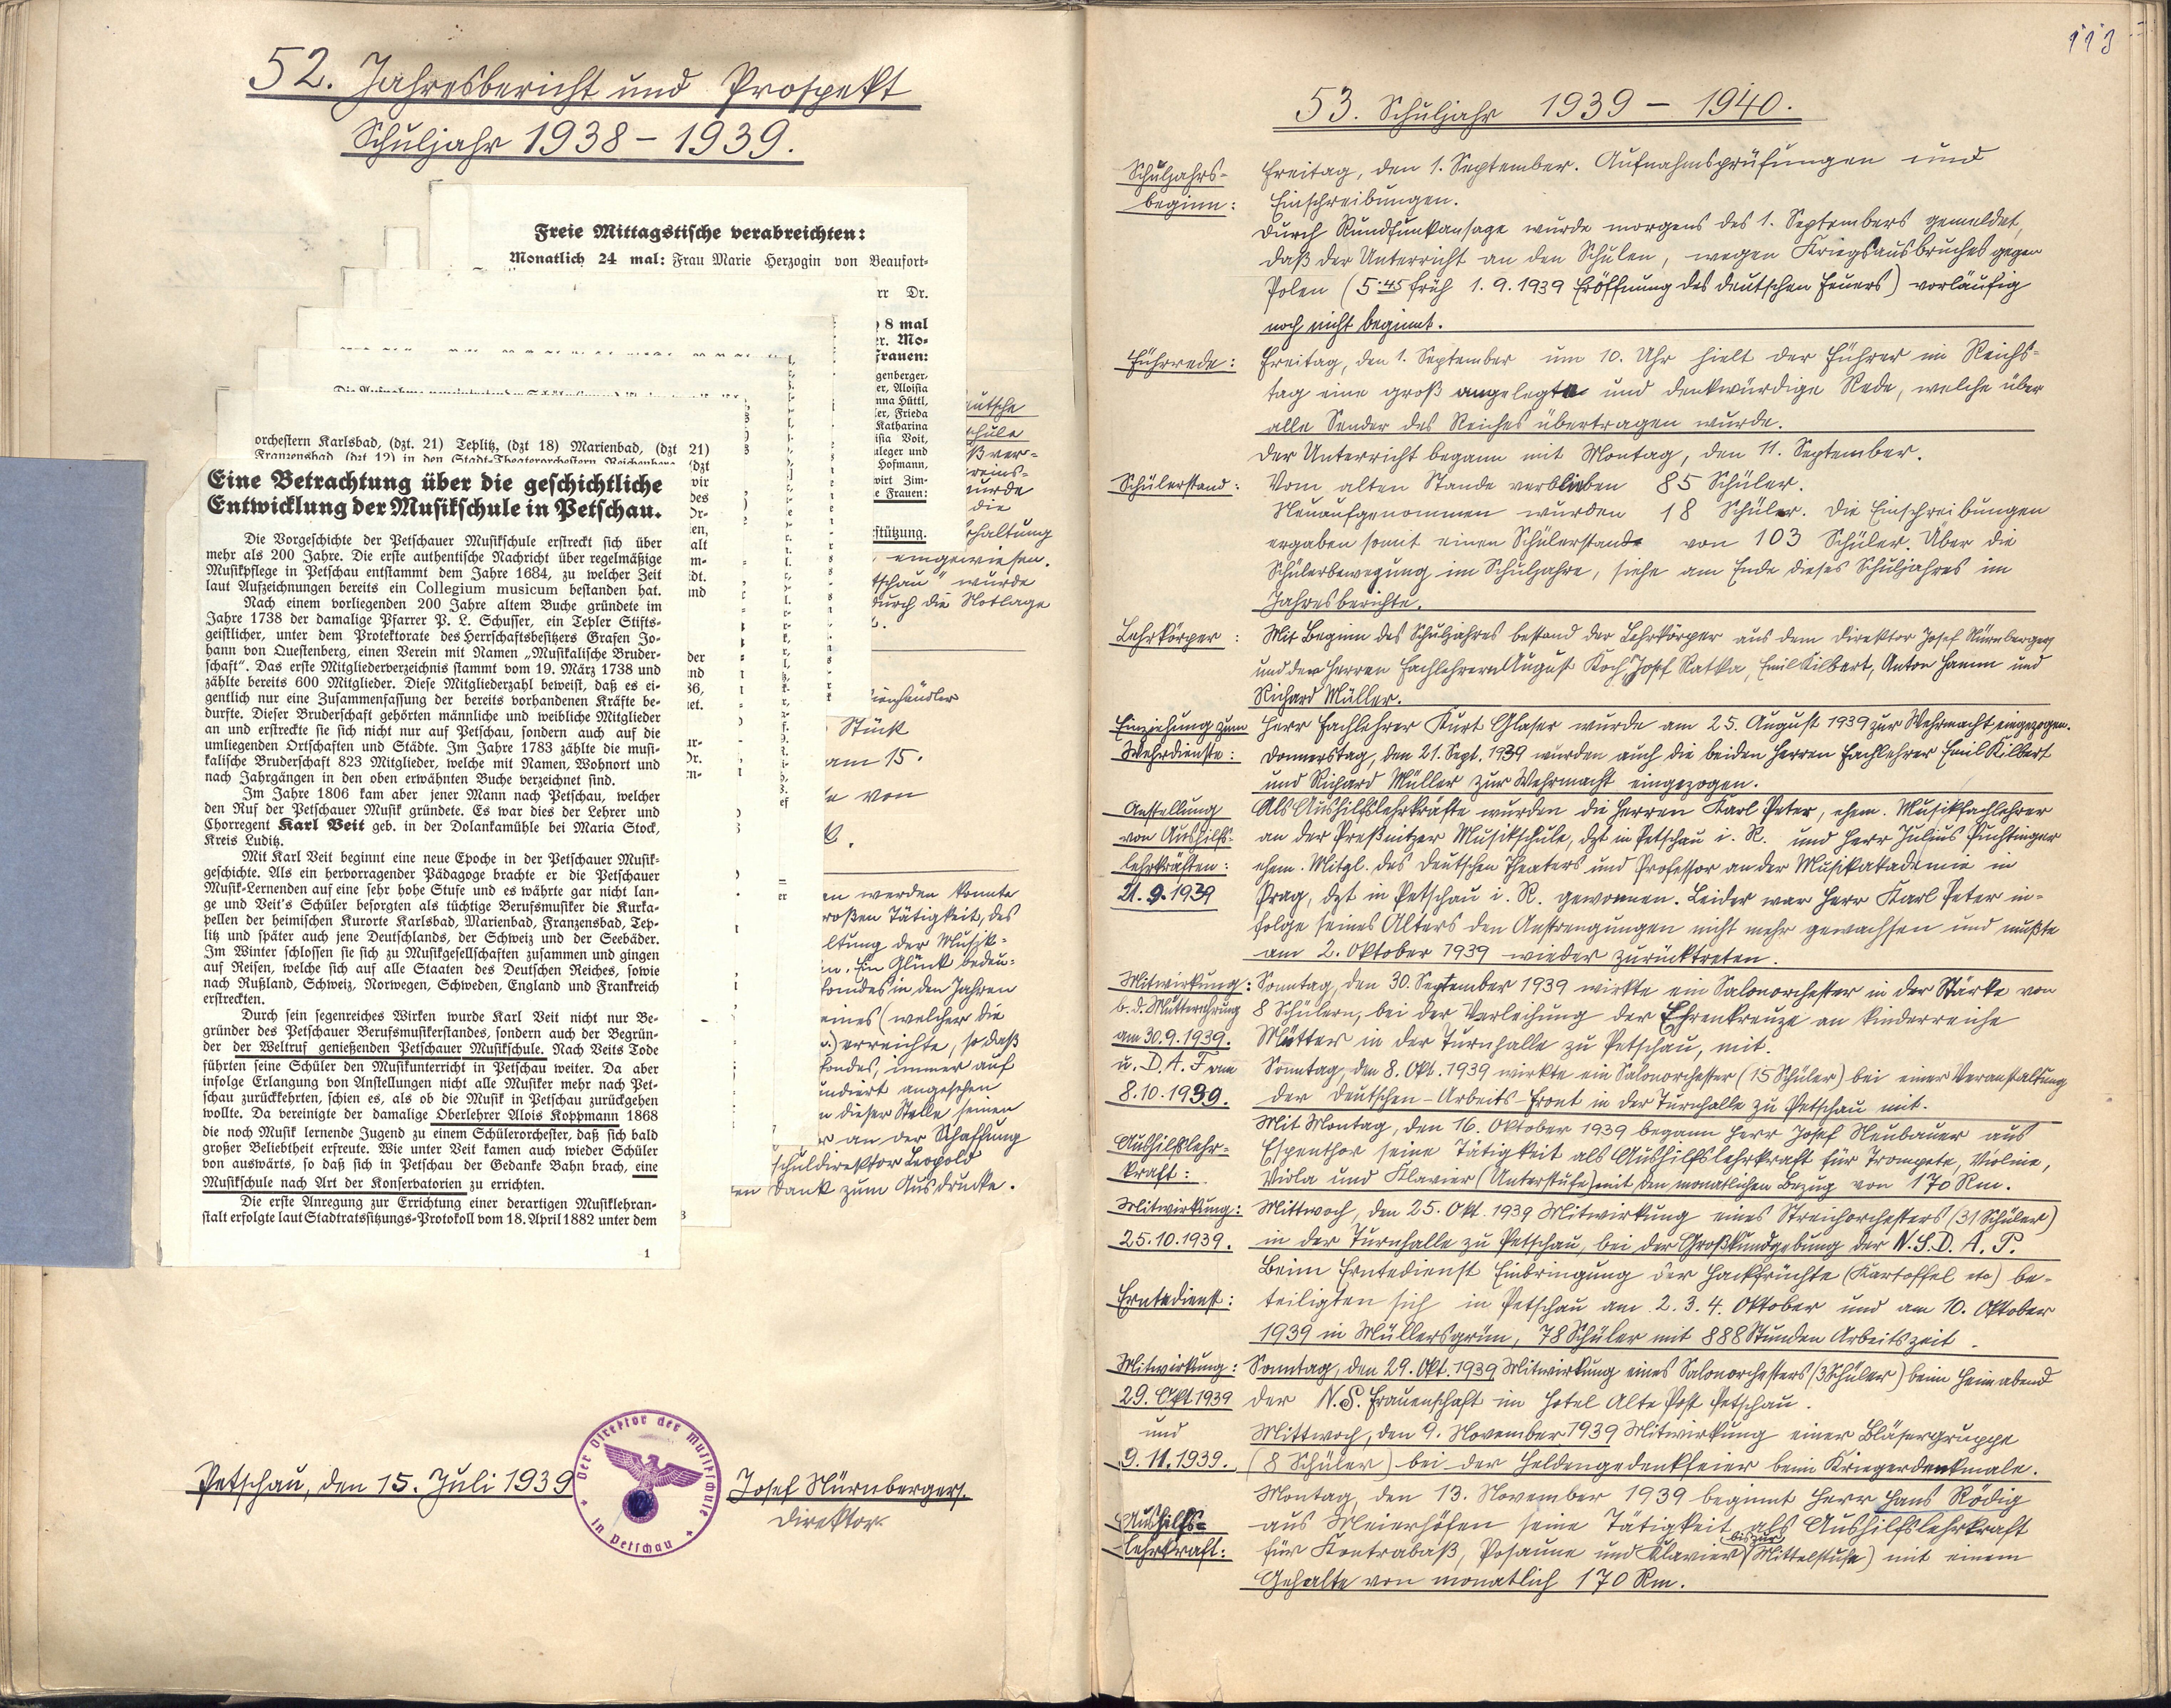 52. Jahresbericht und Prospekt
Schuljahr 1938 – 1939.
Freie Mittagstische verabreichten:
Monatlich 24 mal: Frau Marie Herzogin von Beaufort-
rr Dr.
8 mal
r. Mo-
frauen:
genberger,
er, Aloisia
nna Hüttl,
er, Frieda
Katharina
isia Voit,
uleger und
Hofmann,
wirt Zim-
e Frauen:
stützung.
eutsche
schule
ßver-
reins-
wurde
die
haltung
eingewiesen.
tschau" wurde
durch die Notlage
ienhändler
Stück
am 15.
von
en werden konnte
roßen Tätigkeit, des
ltung der Musik-
n. Ein Glück bedeu-
fondes in den Jahren
eines (welcher die
) erreichte, so daß
fondes, immer auf
undiert angesehen
n dieser Stelle seinen
r an der Schaffung
schuldirektor Leopold
en Dank zum Ausdrucke.
orchestern Karlsbad, (dzt. 21) Teplitz, (dzt 18) Marienbad, (dzt 21)
Franzensbad (dzt 12) in den Stadt-Theaterorchestern Reichenberg (dzt
Eine Betrachtung über die geschichtliche
Entwicklung der Musikschule in Petschau.
Die Vorgeschichte der Petschauer Musikschule erstreckt sich über
mehr als 200 Jahre. Die erste authentische Nachricht über regelmäßige
Musikpflege in Petschau entstammt dem Jahre 1684, zu welcher Zeit
laut Aufzeichnungen bereits ein Collegium musicum bestanden hat.
Nach einem vorliegenden 200 Jahre altem Buche gründete im
Jahre 1738 der damalige Pfarrer P. L. Schusser, ein Tepler Stifts-
geistlicher, unter dem Protektorate des Herrschaftsbesitzers Grafen Jo-
hann von Questenberg, einen Verein mit Namen „Musikalische Bruder-
schaft". Das erste Mitgliederverzeichnis stammt vom 19. März 1738 und
zählte bereits 600 Mitglieder. Diese Mitgliederzahl beweist, daß es ei-
gentlich nur eine Zusammenfassung der bereits vorhandenen Kräfte be-
durfte. Dieser Bruderschaft gehörten männliche und weibliche Mitglieder
an und erstreckte sie sich nicht nur auf Petschau, sondern auch auf die
umliegenden Ortschaften und Städte. Im Jahre 1783 zählte die musi-
kalische Bruderschaft 823 Mitglieder, welche mit Namen, Wohnort und
nach Jahrgängen in den oben erwähnten Buche verzeichnet sind.
Im Jahre 1806 kam aber jener Mann nach Petschau, welcher
den Ruf der Petschauer Musik gründete. Es war dies der Lehrer und
Chorregent Karl Veit geb. in der Dolankamühle bei Maria Stock,
Kreis Luditz.
Mit Karl Veit beginnt eine neue Epoche in der Petschauer Musik-
geschichte. Als ein hervorragender Pädagoge brachte er die Petschauer
Musik-Lernenden auf eine sehr hohe Stufe und es währte gar nicht lan-
ge und Veit's Schüler besorgten als tüchtige Berufsmusiker die Kurka-
pellen der heimischen Kurorte Karlsbad, Marienbad, Franzensbad, Tep-
litz und später auch jene Deutschlands, der Schweiz und der Seebäder.
Im Winter schlossen sie sich zu Musikgesellschaften zusammen und gingen
auf Reisen, welche sich auf alle Staaten des Deutschen Reiches, sowie
nach Rußland, Schweiz, Norwegen, Schweden, England und Frankreich
erstreckten.
Durch sein segenreiches Wirken wurde Karl Veit nicht nur Be-
gründer des Petschauer Berufsmusikerstandes, sondern auch der Begrün-
der der Weltruf genießenden Petschauer Musikschule. Nach Veits Tode
führten seine Schüler den Musikunterricht in Petschau weiter. Da aber
infolge Erlangung von Anstellungen nicht alle Musiker mehr nach Pet-
schau zurückkehrten, schien es, als ob die Musik in Petschau zurückgehen
wollte. Da vereinigte der damalige Oberlehrer Alois Koppmann 1868
die noch Musik lernende Jugend zu einem Schülerorchester, daß sich bald
großer Beliebtheit erfreute. Wie unter Veit kamen auch wieder Schüler
von auswärts, so daß sich in Petschau der Gedanke Bahn brach, eine
Musikschule nach Art der Konservatorien zu errichten.
Die erste Anregung zur Errichtung einer derartigen Musiklehran-
stalt erfolgte laut Stadtratssitzungs-Protokoll vom 18. April 1882 unter dem
1
Petschau, den 15. Juli 1939
Der Direktor der Musikschule
in Petschau
Josef Nürnberger.
Direktor.
113
53. Schuljahr 1939 – 1940.
Schuljahrs- Freitag, den 1. September. Aufnahmsprüfungen und
beginn: Einschreibungen.
Durch Rundfunkansage wurde morgens des 1. Septembers gemeldet,
daß der Unterricht an den Schulen, wegen Kriegsausbruches gegen
Polen (5.45 früh 1.9.1939 Eröffnung des deutschen Feuers) vorläufig
noch nicht beginnt.
Führrede: Freitag, den 1. September um 10. Uhr hielt der Führer im Reichs-
tag eine groß angelegte und denkwürdige Rede, welche über
alle Sender des Reiches übertragen wurde.
Der Unterricht begann mit Montag, den 11. September.
Schülerstand: Vom alten Stande verblieben 85 Schüler.
Neuaufgenommen wurden 18 Schüler. Die Einschreibungen
ergaben somit einen Schülerstand von 103 Schüler. Über die
Schülerbewegung im Schuljahre, siehe am Ende dieses Schuljahres im
Jahresberichte.
Lehrkörper: Mit Beginn des Schuljahres bestand der Lehrkörper aus dem Direktor Josef Nürnberger
und den Herren Fachlehrern August Koch, Josef Ratka, Emil Kilbert, Anton Hamm und
Richard Müller.
Einziehung zum Herr Fachlehrer Kurt Glaser wurde am 25. August 1939 zur Wehrmacht eingezogen.
Wehrdienste: Donnerstag, den 21. Sept. 1939 wurden auch die beiden Herren Fachlehrer Emil Kilbert
und Richard Müller zur Wehrmacht eingezogen.
Anstellung Als Aushilfslehrkräfte wurden die Herren Karl Peter, ehem. Musikfachlehrer
von Aushilfs- an der Preßnitzer Musikschule, dzt in Petschau i. R. und Herr Julius Puchtinger
lehrkräften: ehem. Mitgl. des Deutschen Theaters und Professor an der Musikakademie in
21.9.1939 Prag, dzt in Petschau i. R. gewonnen. Leider war Herr Karl Peter in-
folge seines Alters den Anstrengungen nicht mehr gewachsen und mußte
am 2. Oktober 1939 wieder zurücktreten.
Mitwirkung: Sonntag, den 30. September 1939 wirkte ein Salonorchester in der Stärke von
b. d. Mutterehrung 8 Schülern, bei der Verleihung der Ehrenkreuze an kinderreiche
am 30.9.1939. Mütter in der Turnhalle zu Petschau, mit.
u. D.A.F am Sonntag, den 8. Okt. 1939 wirkte ein Salonorchester (15 Schüler) bei einer Veranstaltung
8.10.1939. der Deutschen-Arbeits-Front in der Turnhalle zu Petschau mit.
Mit Montag, den 16. Oktober 1939 begann Herr Josef Neubauer aus
Aushilfslehr- Espenthor seine Tätigkeit als Aushilfslehrkraft für Trompete, Violine,
kraft: Viola und Klavier (Unterstufe) mit den monatlichen Bezug von 170 Rm.
Mitwirkung: Mittwoch, den 25. Okt. 1939 Mitwirkung eines Streichorchesters (31 Schüler)
25.10.1939. in der Turnhalle zu Petschau, bei der Großkundgebung der N.S.D.A.P.
Beim Erntedienst Einbringung der Hackfrüchte (Kartoffel etc) be-
Erntedienst: teiligten sich in Petschau am 2. 3. 4. Oktober und am 10. Oktober
1939 in Müllersgrün, 78 Schüler mit 888 Stunden Arbeitszeit.
Mitwirkung: Sonntag, den 29. Okt. 1939 Mitwirkung eines Salonorchesters (3 Schüler) beim Heimabend
29. Okt. 1939 der N.S. Frauenschaft im Hotel Alte Post Petschau.
und Mittwoch, den 9. November 1939 Mitwirkung einer Bläsergruppe
9.11.1939. (8 Schüler) bei der Heldengedenkfeier beim Kriegerdenkmale.
Montag, den 13. November 1939 beginnt Herr Hans Rödig
Aushilfs- aus Meierhöfen seine Tätigkeit als Aushilfslehrkraft
lehrkraft: für Kontrabaß, Posaune und Klavier (bis zur Mittelstufe) mit einem
Gehalte von monatlich 170 Rm.